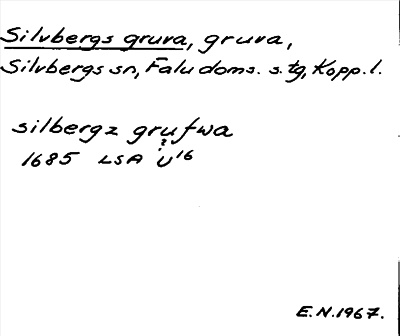 Silvbergs gruva, gruva,
Silvbergs sn, Falu doms. s. tg, Kopp. l.
silbergz grufwa
1685 LSA U16
E.N. 1967.